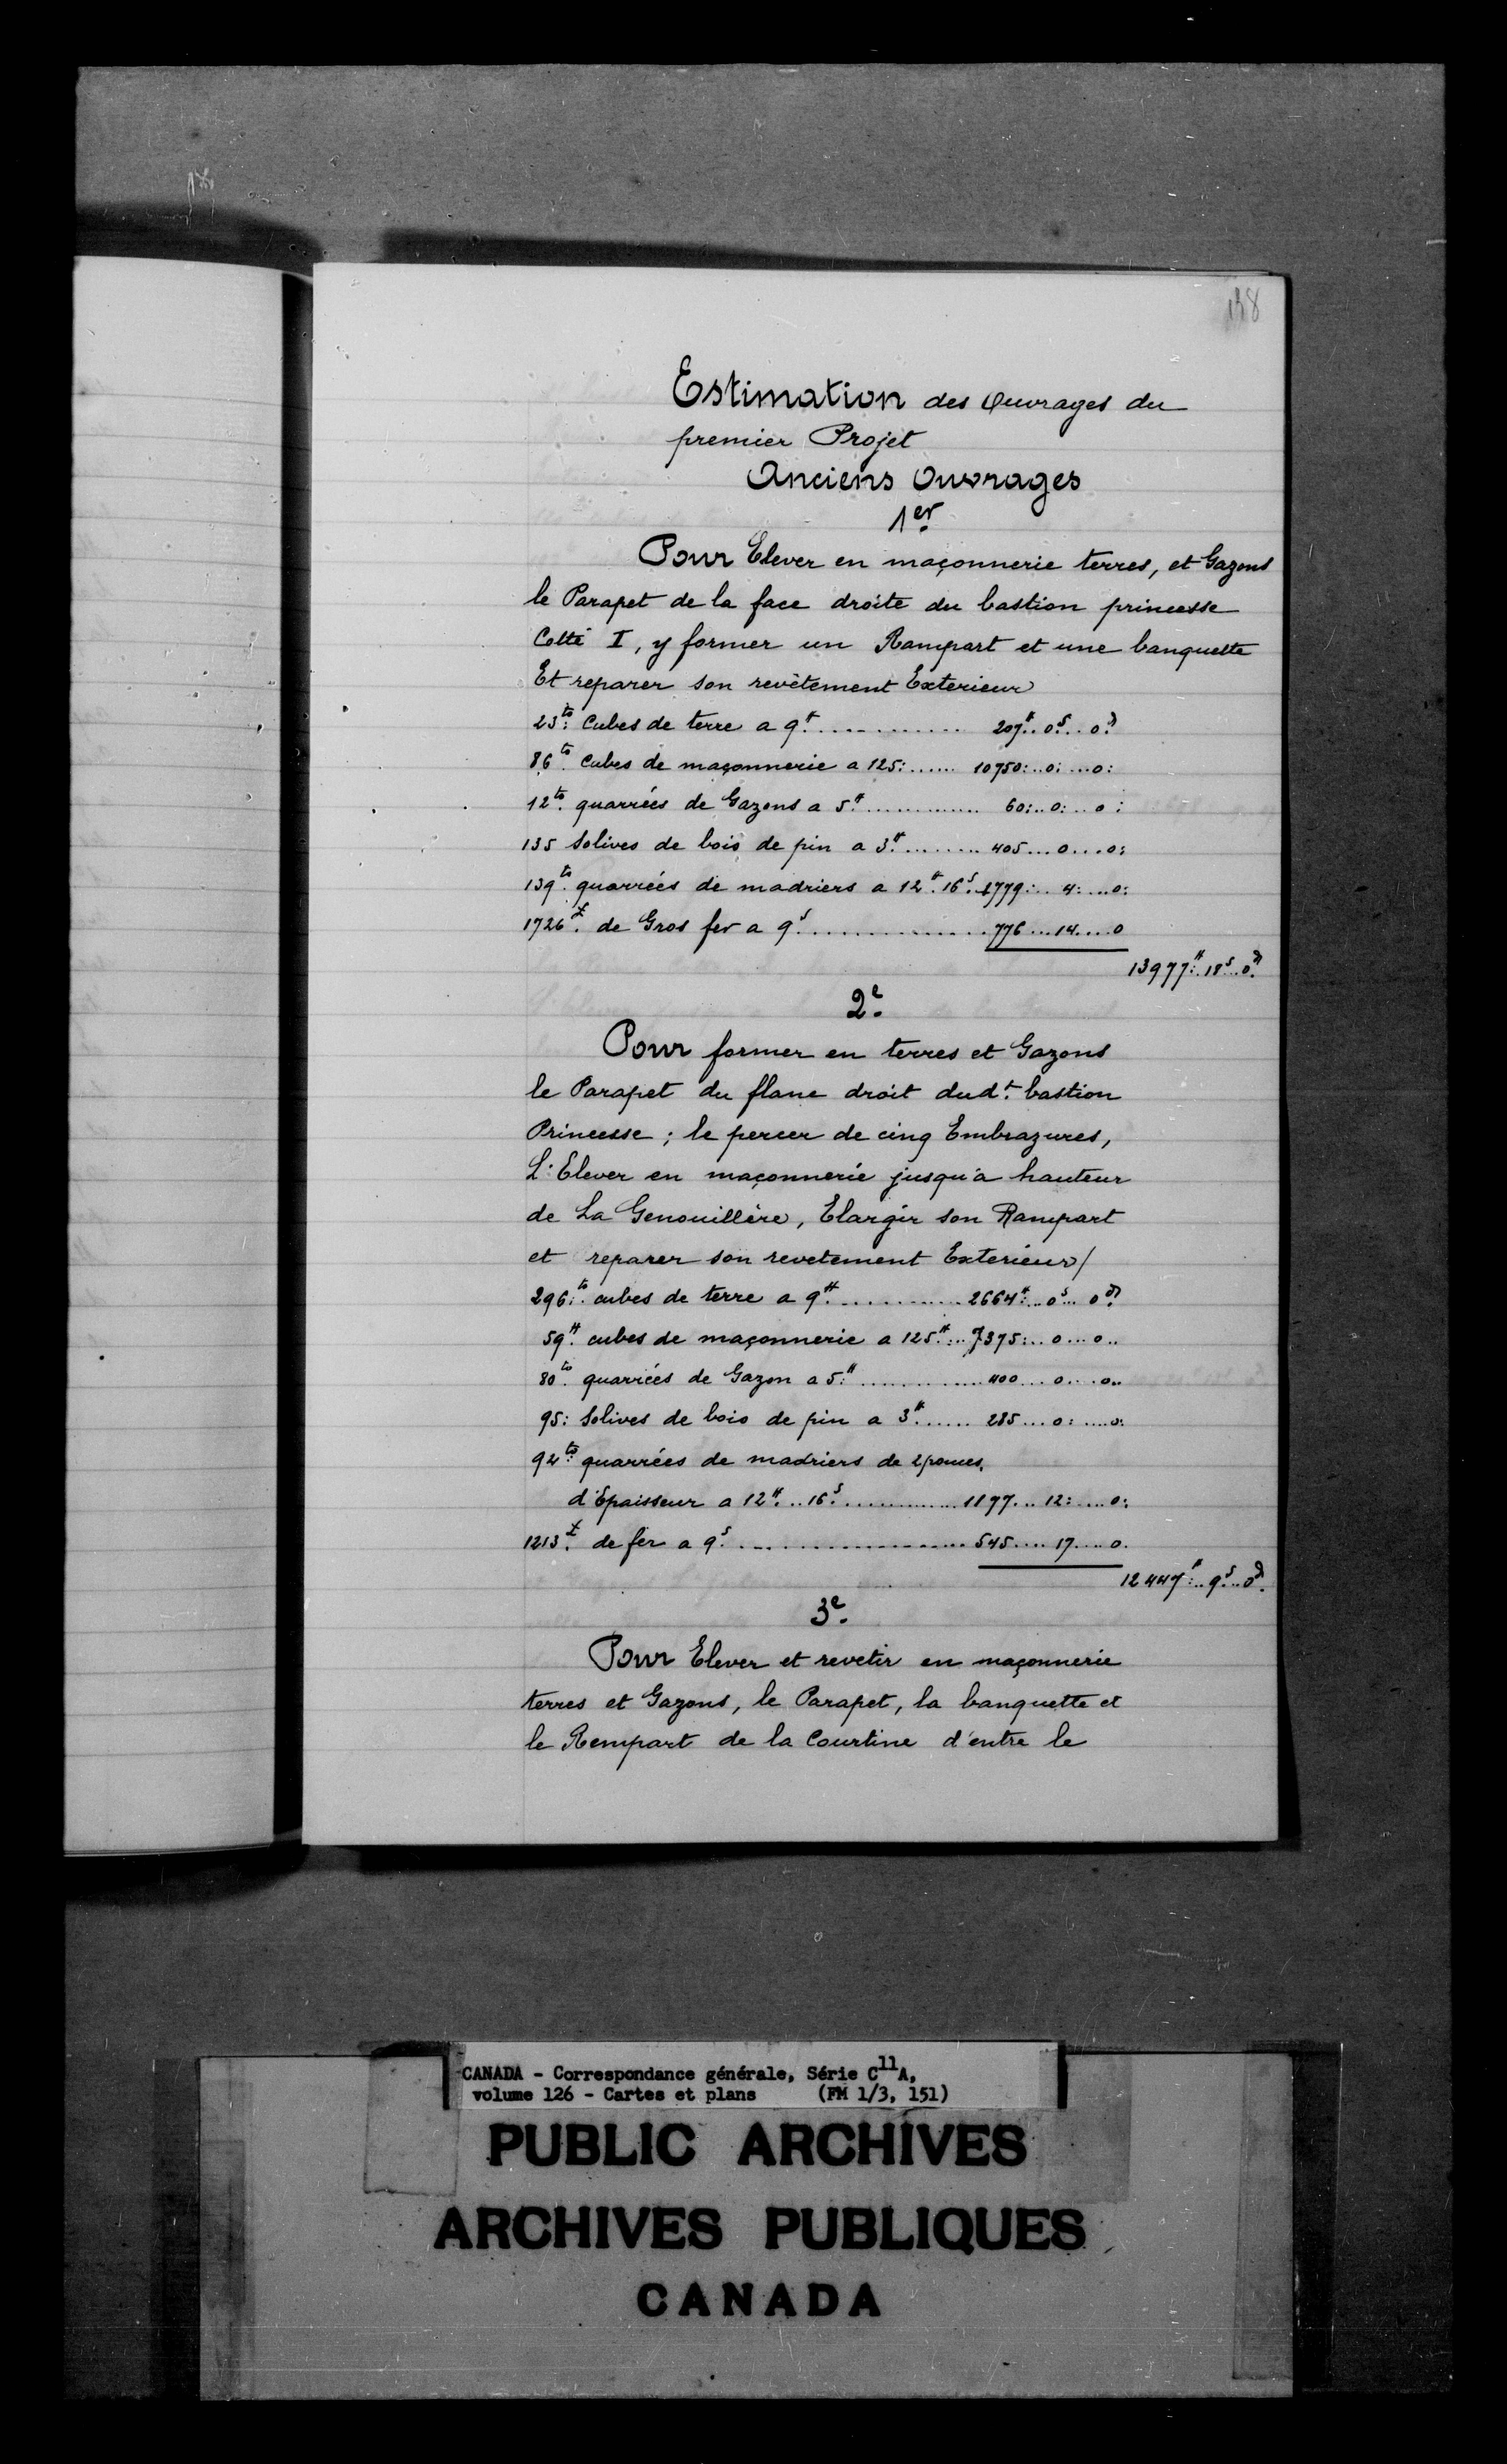 138
Estimation des Ouvrages du
premier Projet
Anciens Ouvrages
1er
Pour Elever en maçonnerie terres, et Gazons
le Parapet de la face droite du bastion princesse
Cotté I, y former un Rampart et une banquette
Et reparer son revètement Exterieur
23to. Cubes de terre a 9#. ............ 207#..0s...0d
86to. Cubes de maçonnerie a 125: ...... 10750:..0:...0:
12to. quarrées de Gazons a 5# ............ 60:..0:...0:
135 Solives de bois de pin a 3#. ........ 405...0....0:
139to. quarrées de madriers a 12#. 16s. 1779:...4:....0:
1726£. de Gros fer a 9s. .............. 776...14....0
13977#:..18s...0d
2e.
Pour former en terres et Gazons
le Parapet du flanc droit dudt. bastion
Princesse ; le percer de cinq Embrazures,
L'Elever en maçonnerie jusqu'a hauteur
de La Genouillère, Elargir son Rampart
et reparer son revetement Exterieur/
296:to. cubes de terre a 9#. ............ 2664#:..0s...0d
59#. cubes de maçonnerie a 125#:...7375:..0...0..
80to. quarrées de Gazon a 5:# ............ 400...0....0..
95: Solives de bois de pin a 3#. ...... 285...0:....0:
92to: quarrées de madriers de 2 pouces,
d'Epaisseur a 12#...16s. ............ 1177...12:....0:
1213£. de fer a 9s. .................... 545....17....0.
12447#:..9s...0d.
3e.
Pour Elever et revetir en maçonnerie
terres et Gazons, le Parapet, la banquette et
le Rempart de la Courtine d'entre le
CANADA - Correspondance générale, Série C11A,
volume 126 - Cartes et plans (FM 1/3, 151)
PUBLIC ARCHIVES
ARCHIVES PUBLIQUES
CANADA